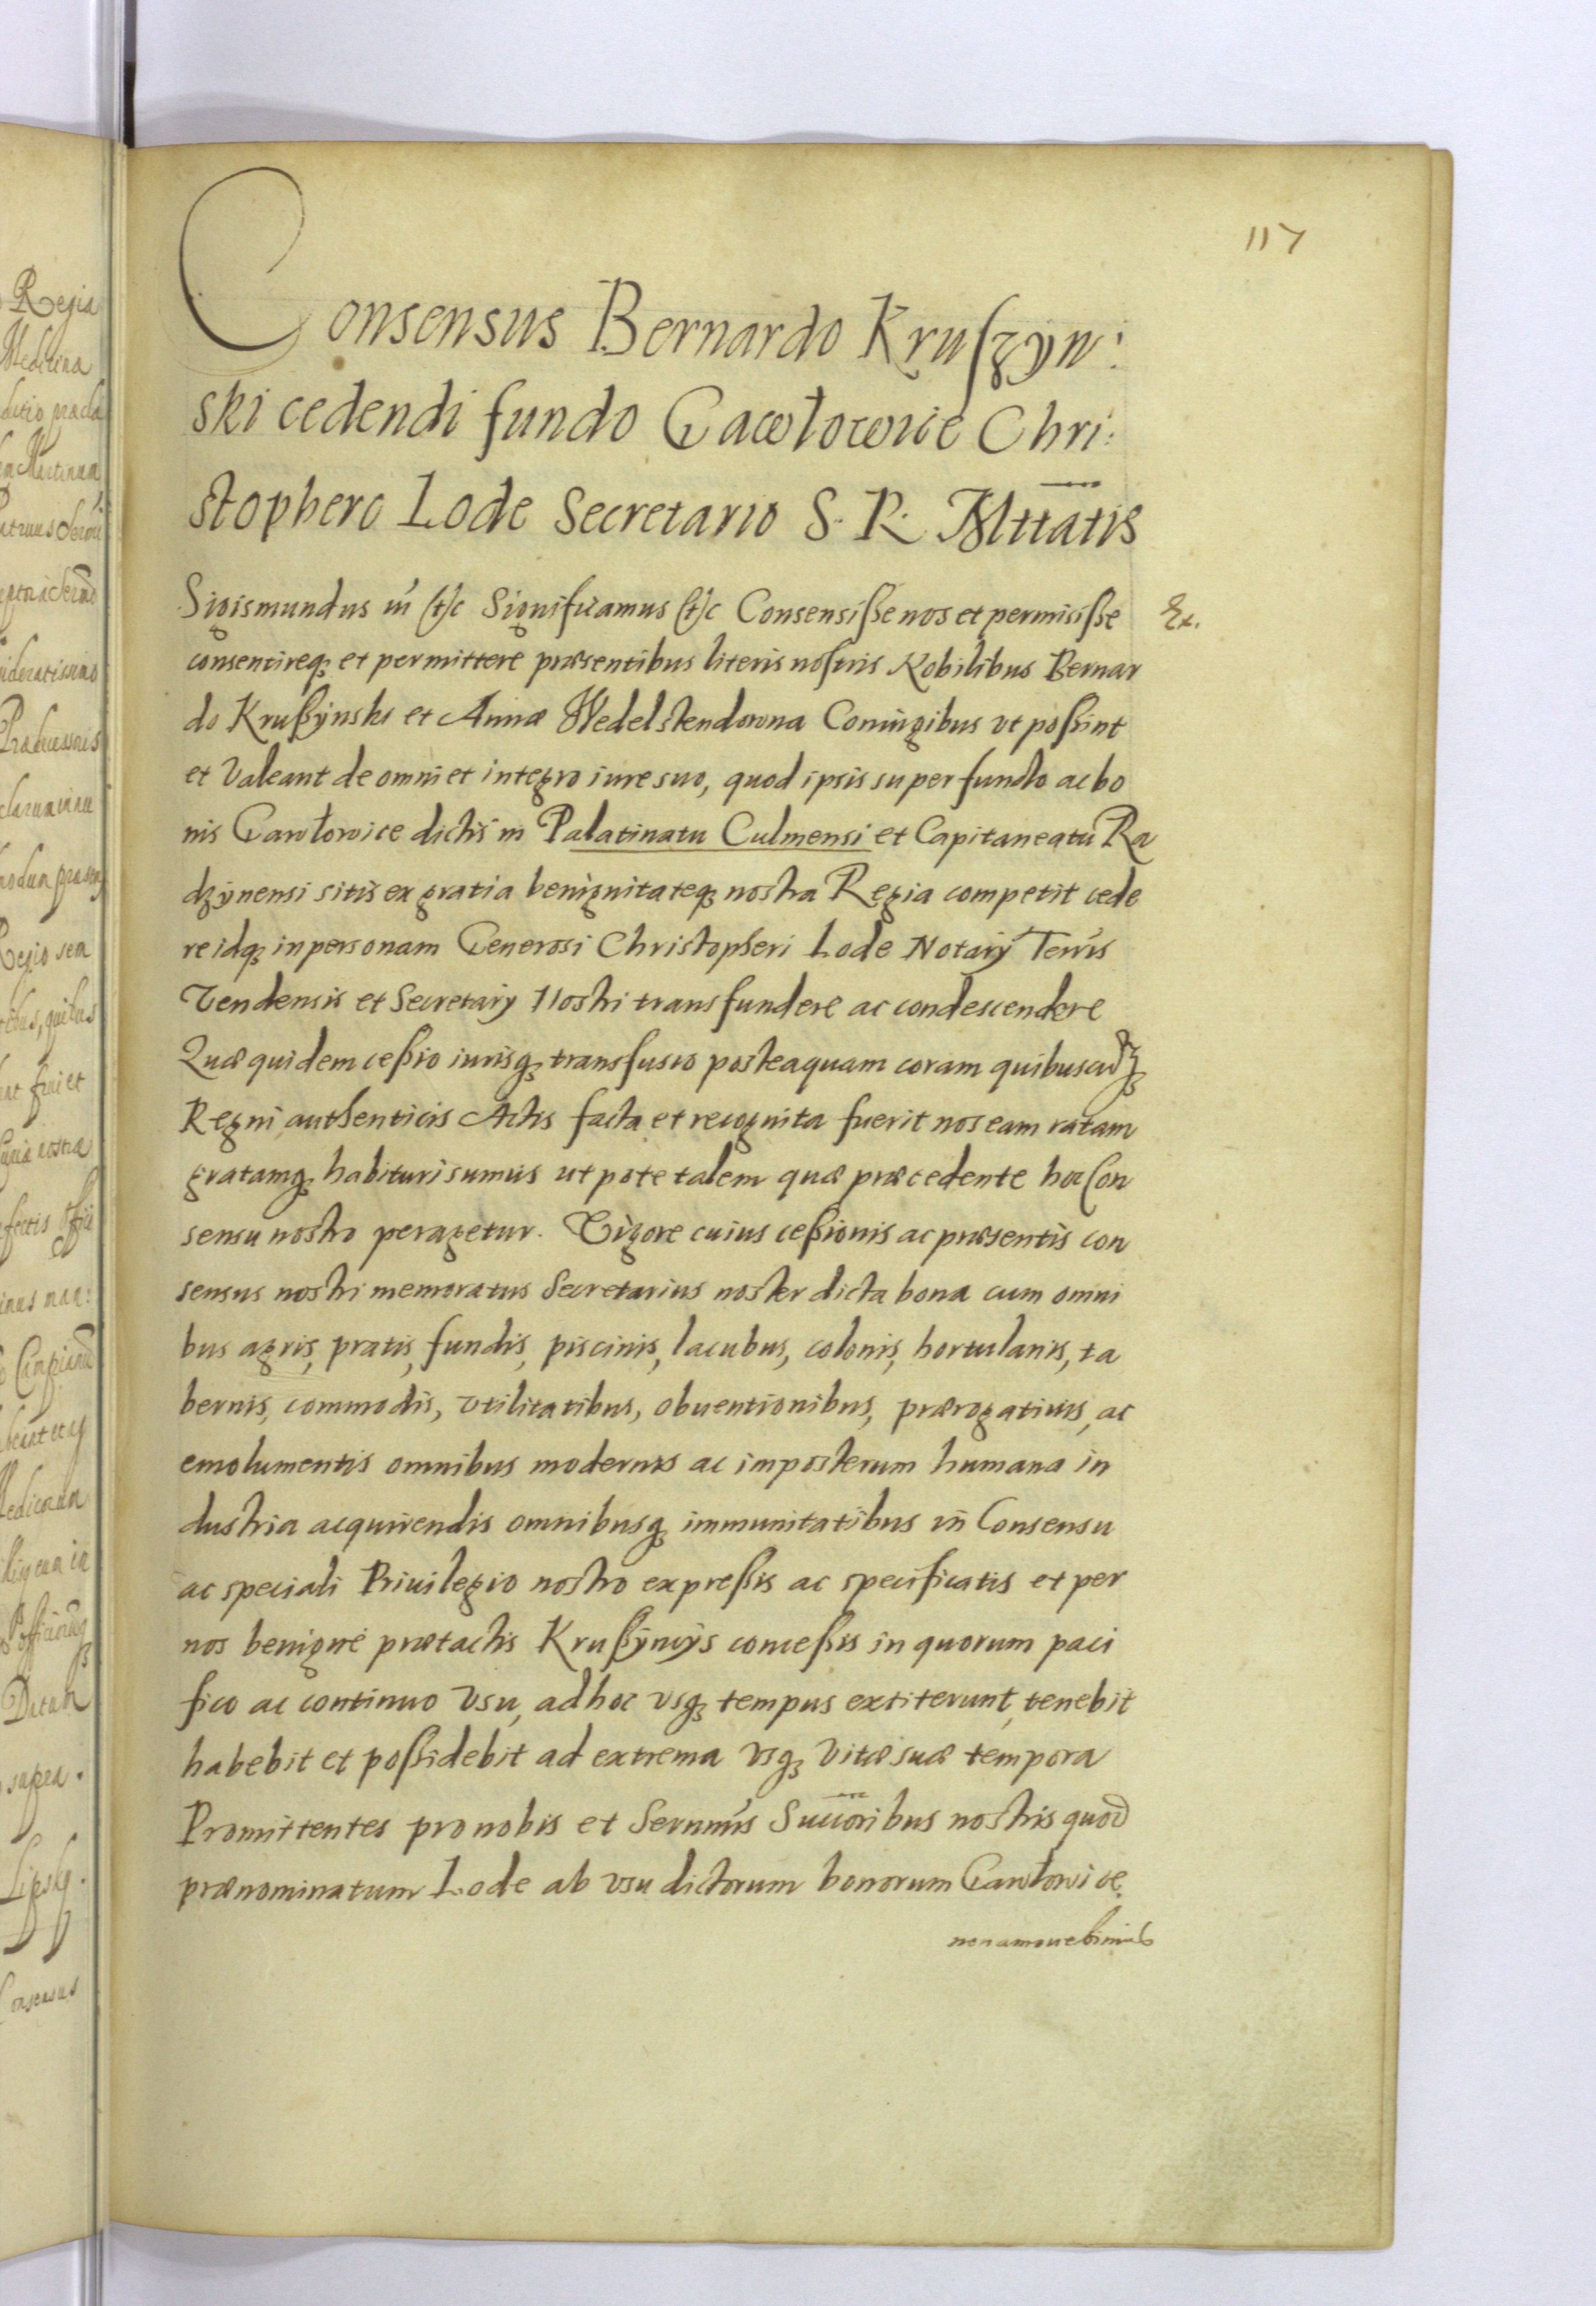 117
Consensus Bernardo Kruszyn:
ski cedendi fundo Gawlowice Chri:
stophero Lode Secretario S. R. Mttatis
Sigismundus III etc Significamus etc Consensisse nos et permisisse
Ex.
consentireq3 et permittere præsentibus literis nostris Nobilibus Bernar
do Krußÿnski et Annæ Wedelstendowna Coniugibus vt poßint
et Valeant de omni et integro iure suo, quod ipsis super fundo ac bo
nis Gawłowice dictis in Palatinatu Culmensi et Capitaneatu Ra
dzÿnensi sitis ex gratia benignitateq3 nostra Regia competit cede
re idq3 in personam Generosi Christopheri Lode Notarÿ Terris
Vendensis et Secretarÿ Nostri transfundere ac condescendere
Quæ quidem ceßio iurisq3 transfusio posteaquam coram quibuscu͂q3
Regni authenticis Actis facta et recognita fuerit nos eam ratam
gratamq3 habituri sumus utpote talem quæ præcedente hoc Con
sensu nostro peragetur. Vigore cuius ceßionis ac præsentis con
sensus nostri memoratus Secretarius noster dicta bona cum omni
bus agris, pratis, fundis, piscinis, lacubus, colonis, hortulanis, ta
bernis, commodis, vtilitatibus, obuentionibus, prærogatiuis, ac
emolumentis omnibus modernis ac imposterum humana in
dustria acquirendis omnibusq3 immunitatibus in Consensu
ac speciali Priuilegio nostro expreßis ac specificatis et per
nos benigne prætactis Krußÿnÿs conceßis in quorum paci
fico ac continuo vsu, ad hoc vsq3 tempus extiterunt, tenebit
habebit et poßidebit ad extrema vsq3 vitæ suæ tempora
Promittentes pro nobis et Sernmis Succoribus nostris quod
prænominatum Lode ab vsu dictorum bonorum Gawłowice
non amouebimus